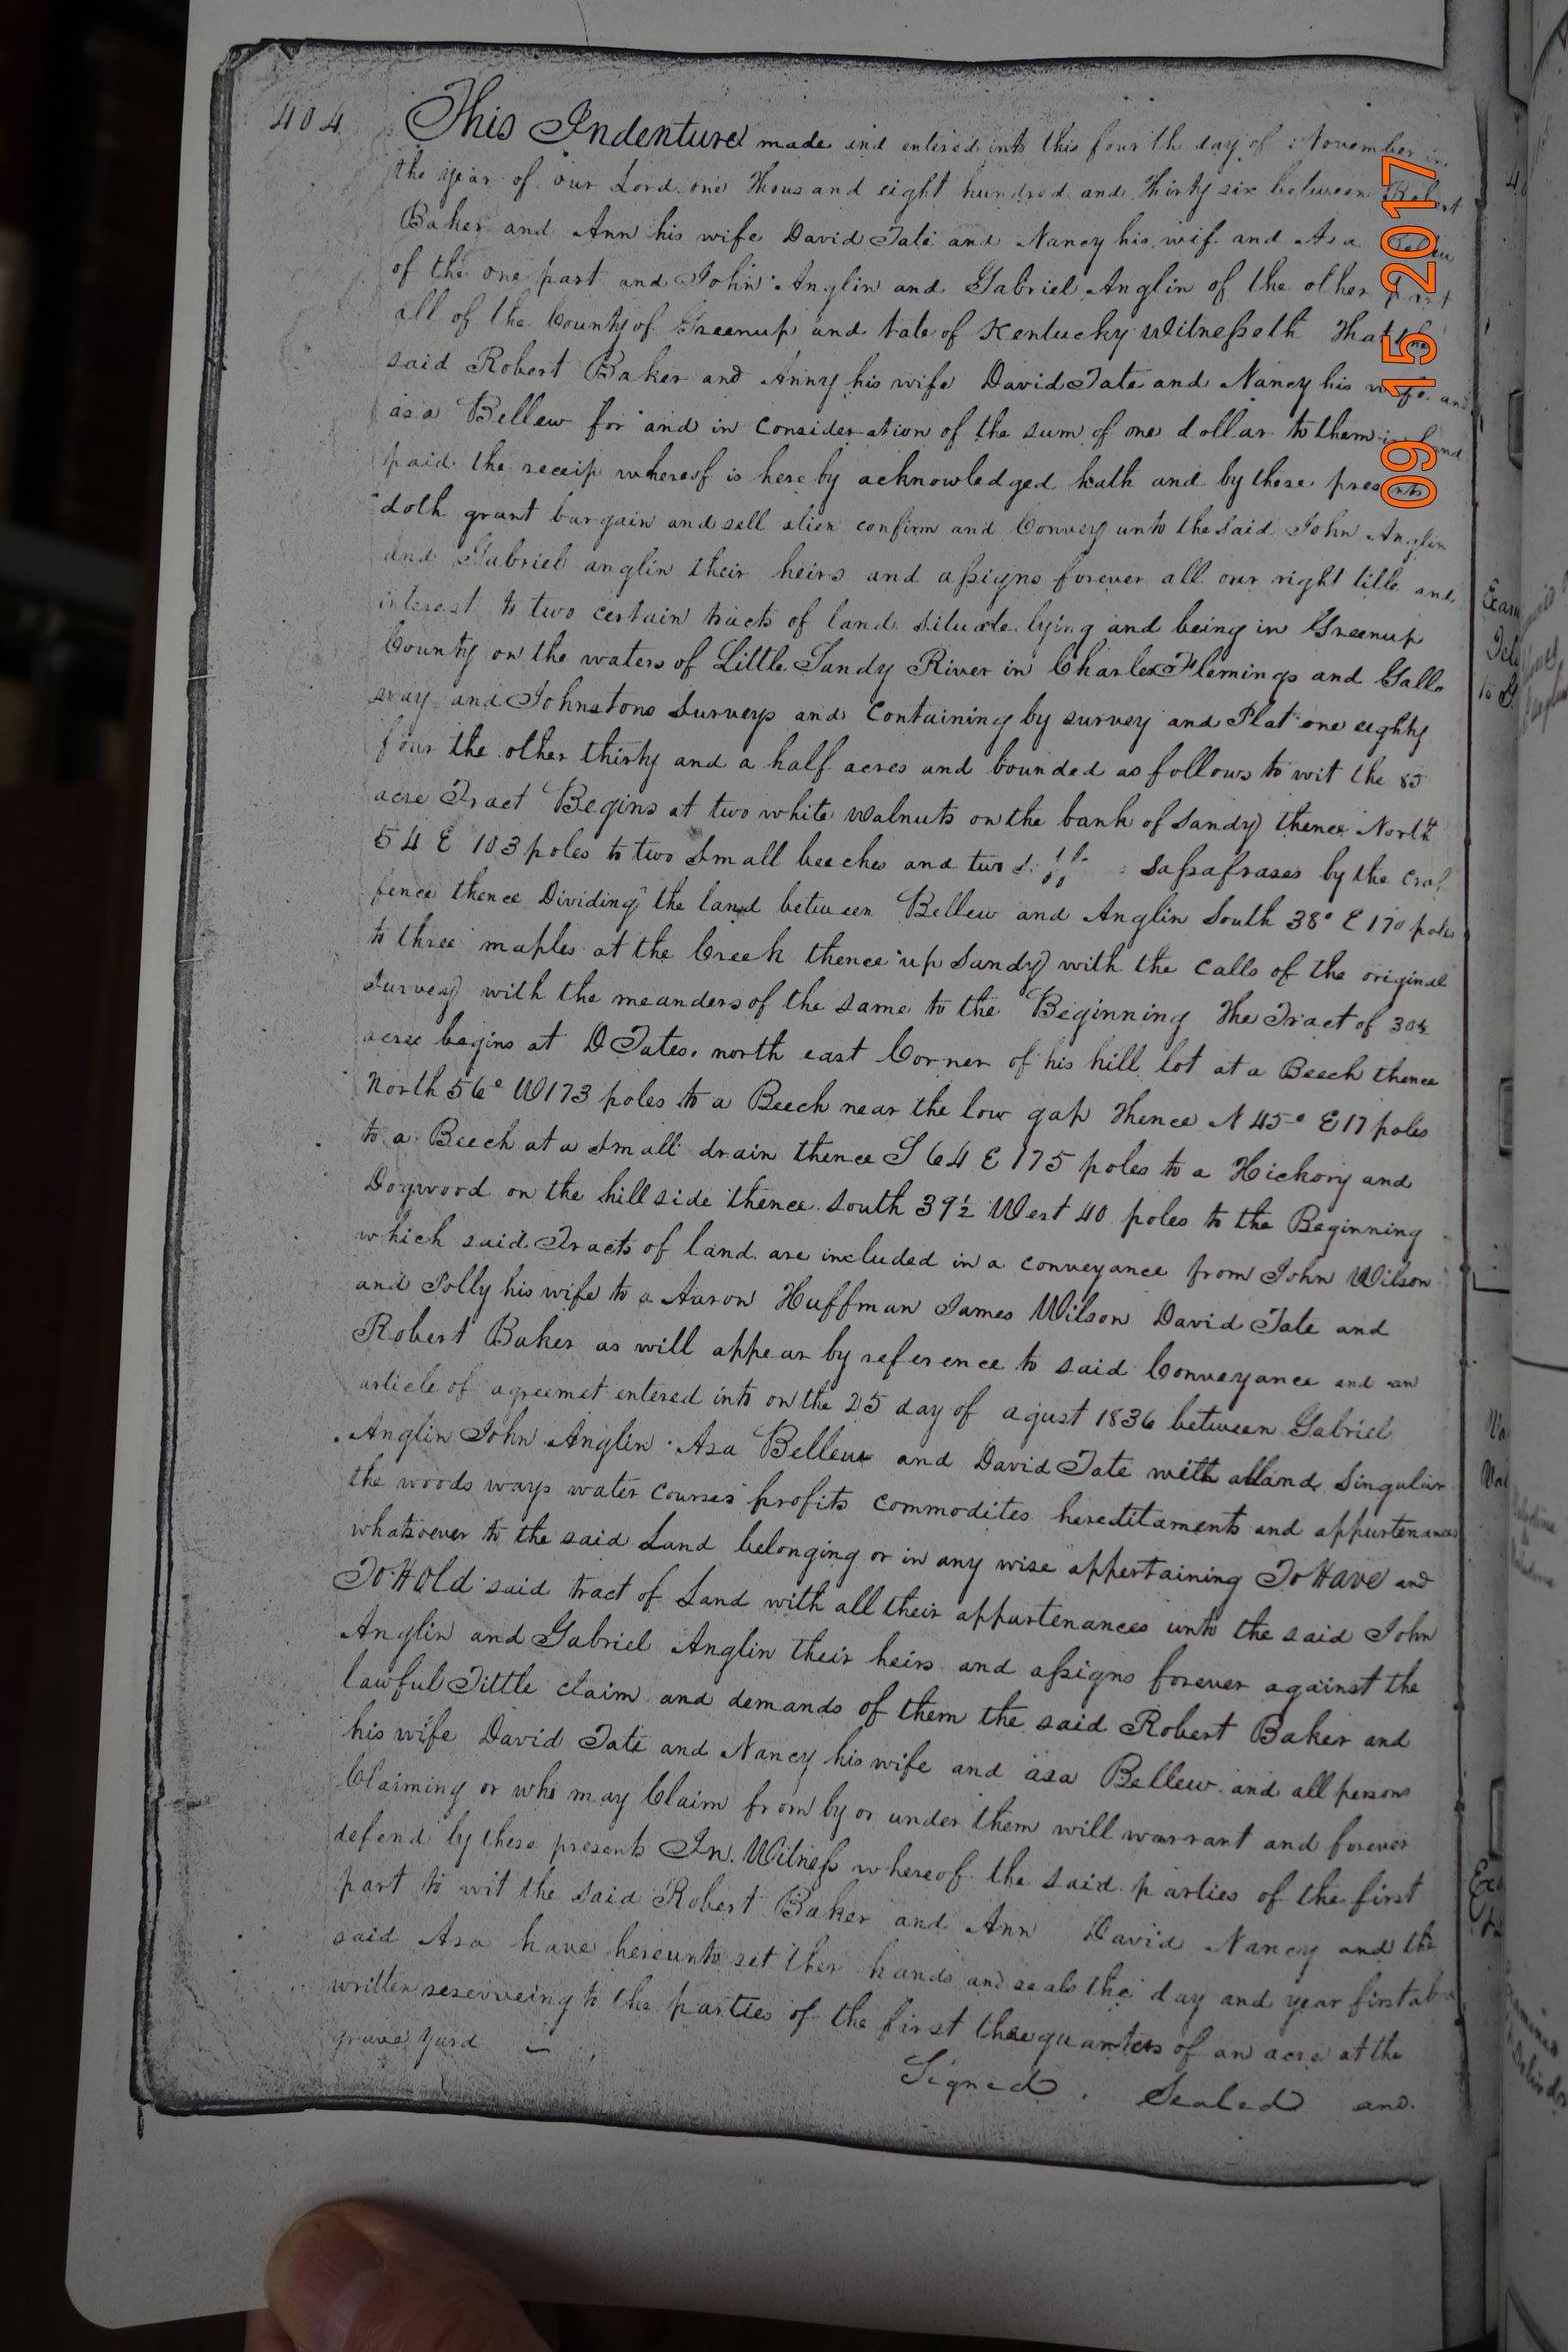 404
This Indenture made and entered into this fourth day of November in
the year of our Lord one thousand eight hundred and Thirty six between Robert
Baker and Ann his wife David Tate and Nancy his wife and Asa Bellew
of the one part and John Anglin and Gabriel Anglin of the other part
all of the County of Greenup and tate of Kentucky Witnesseth That the
said Robert Baker and Anny his wife David Tate and Nancy his wife and
asa Bellew for and in consideration of the sum of one dollar to them in hand
paid the receip whereof is here by acknowledged hath and by these presents
doth grant bargain and sell alien confirm and Convey unto the said John Anglin
and Gabriel anglin their heirs and assigns forever all our right title and
interest to two certain tracts of land situate lying and being in Greenup
County on the waters of Little Sandy River in Charles Flemings and Gallo
way and Johnstons Surveys and Containing by survey and Plat one eighty
four the other thirty and a half acres and bounded as follows to wit the 85
acre Tract Begins at two white walnuts on the bank of Sandy thence North
54 E 103 poles to two small beeches and two sassafrases by the
fence thence Dividing the land between Bellew and Anglin South 38° E 170 poles
to three maples at the Creek thence up Sandy with the calls of the original
Survey with the meanders of the same to the Beginning The Tract of 30½
acres begins at D Tates north east Corner of his hill lot at a Beech thence
North 56° W 173 poles to a Beech near the low gap Thence N 45° E 17 poles
to a Beech at a small drain thence S 64 E 175 poles to a Hickory and
Dogwood on the hill side thence south 39½ West 40 poles to the Beginning
which said Tracts of land are included in a conveyance from John Wilson
and Polly his wife to a Aaron Huffman James Wilson David Tate and
Robert Baker as will appear by reference to said Conveyance and an
article of agreemet entered into on the 25 day of agust 1836 between Gabriel
Anglin John Anglin Asa Bellew and David Tate with all and Singular
the woods ways water courses profits commodites hereditaments and appurtenances
whatsoever to the said Land belonging or in any wise appertaining To Have and
To Hold said tract of Land with all their appurtenances unto the said John
Anglin and Gabriel Anglin their heirs and assigns forever against the
lawful Tittle claim and demands of them the said Robert Baker and
his wife David Tate and Nancy his wife and asa Bellew and all persons
Claiming or who may Claim from by or under them will warrant and forever
defend by these presents In Witness whereof the said parties of the first
part to wit the said Robert Baker and Ann David Nancy and the
said Asa have hereunto set ther hands and seals the day and year first abo
written reserveing to the parties of the first three quarters of an acre at the
grave yard
Signed Sealed and
09 15 2017